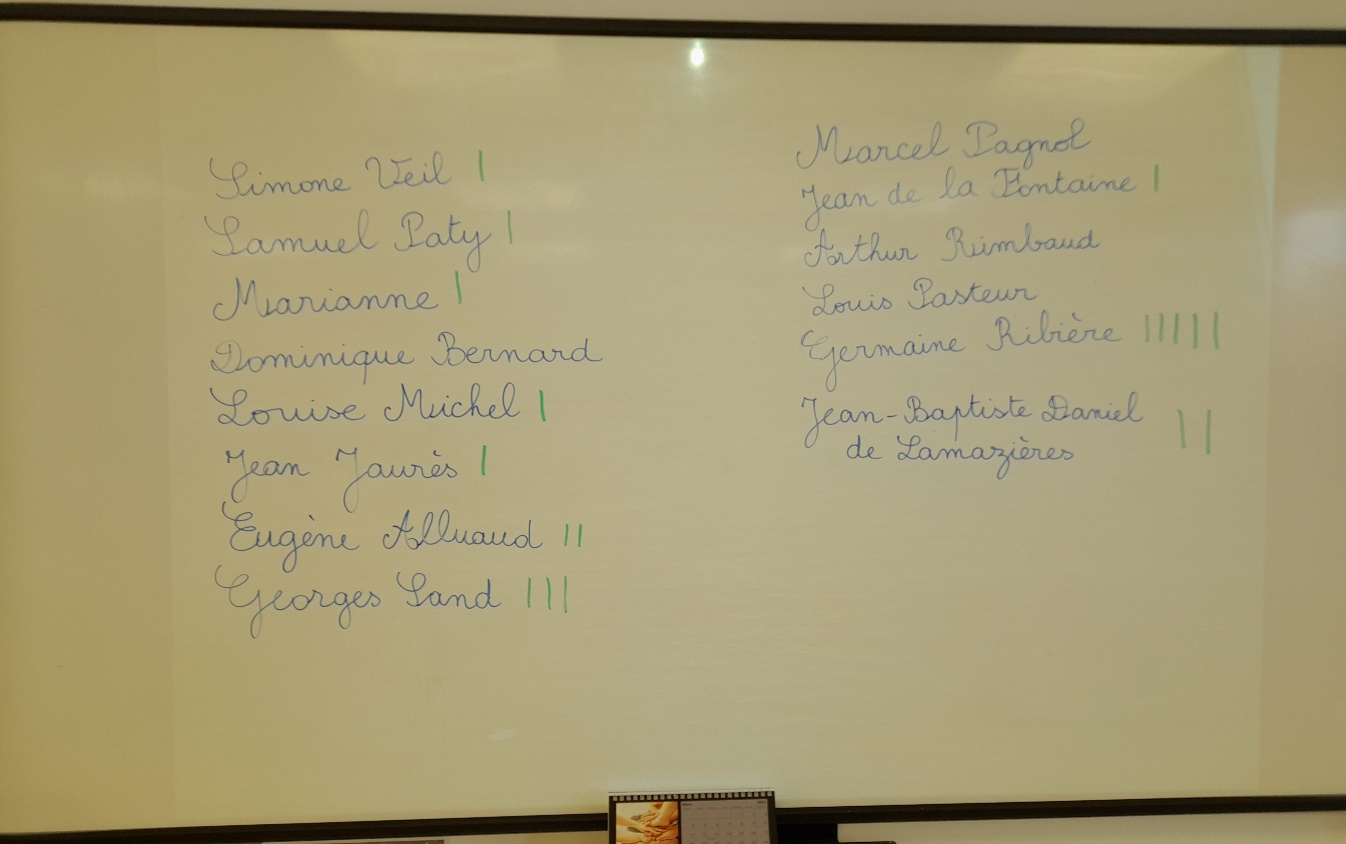 Simone Veil |
Samuel Paty |
Marianne |
Dominique Bernard
Louise Michel |
Jean Jaurès |
Eugène Alluaud ||
Georges Sand |||
Marcel Pagnol
Jean de la Fontaine |
Arthur Rimbaud
Louis Pasteur
Germaine Ribière |||||
Jean-Baptiste Daniel ||
de Lamazières